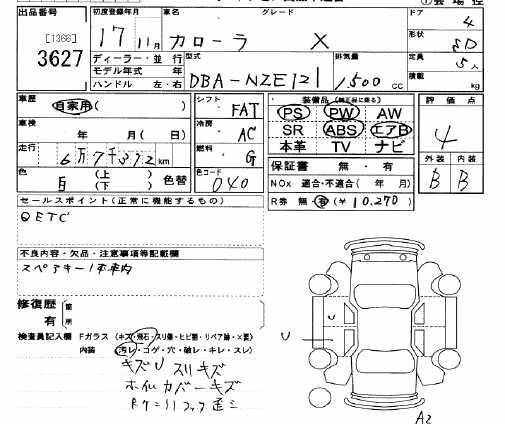 出品番号 初度登録年月 車名 グレード ドア 4
[1366] 3627 17年11月 カローラ X 形状 SD
ディーラー・並行 型式 DBA-NZE121 排気量 1,500cc 定員 5人
モデル年式 年
ハンドル 左・右 積載 kg
車歴 自家用( ) シフト FAT 装備品 評価点 4
車検 年 月(日) 冷房 AC PS PW AW
SR ABS エアB
走行 6万7千372km 燃料 G 本革 TV ナビ 外装 内装
保証書 無・有 B B
色 白 (上)(下) 色替 色コード 040 NOx 適合・不適合( 年 月)
R券 無 有 (¥10,270)
セールスポイント(正常に機能するもの)
○ETC
不良内容・欠品・注意事項等記載欄
スペアキー1本車内
修復歴 有 箇所
検査員記入欄 Fガラス(キズ・飛石・スリ傷・ヒビ割・リペア跡・×要)
内装 (汚レ・コゲ・穴・破レ・キレ・スレ)
キズU スリキズ
ホイルカバーキズ
U
U
A2